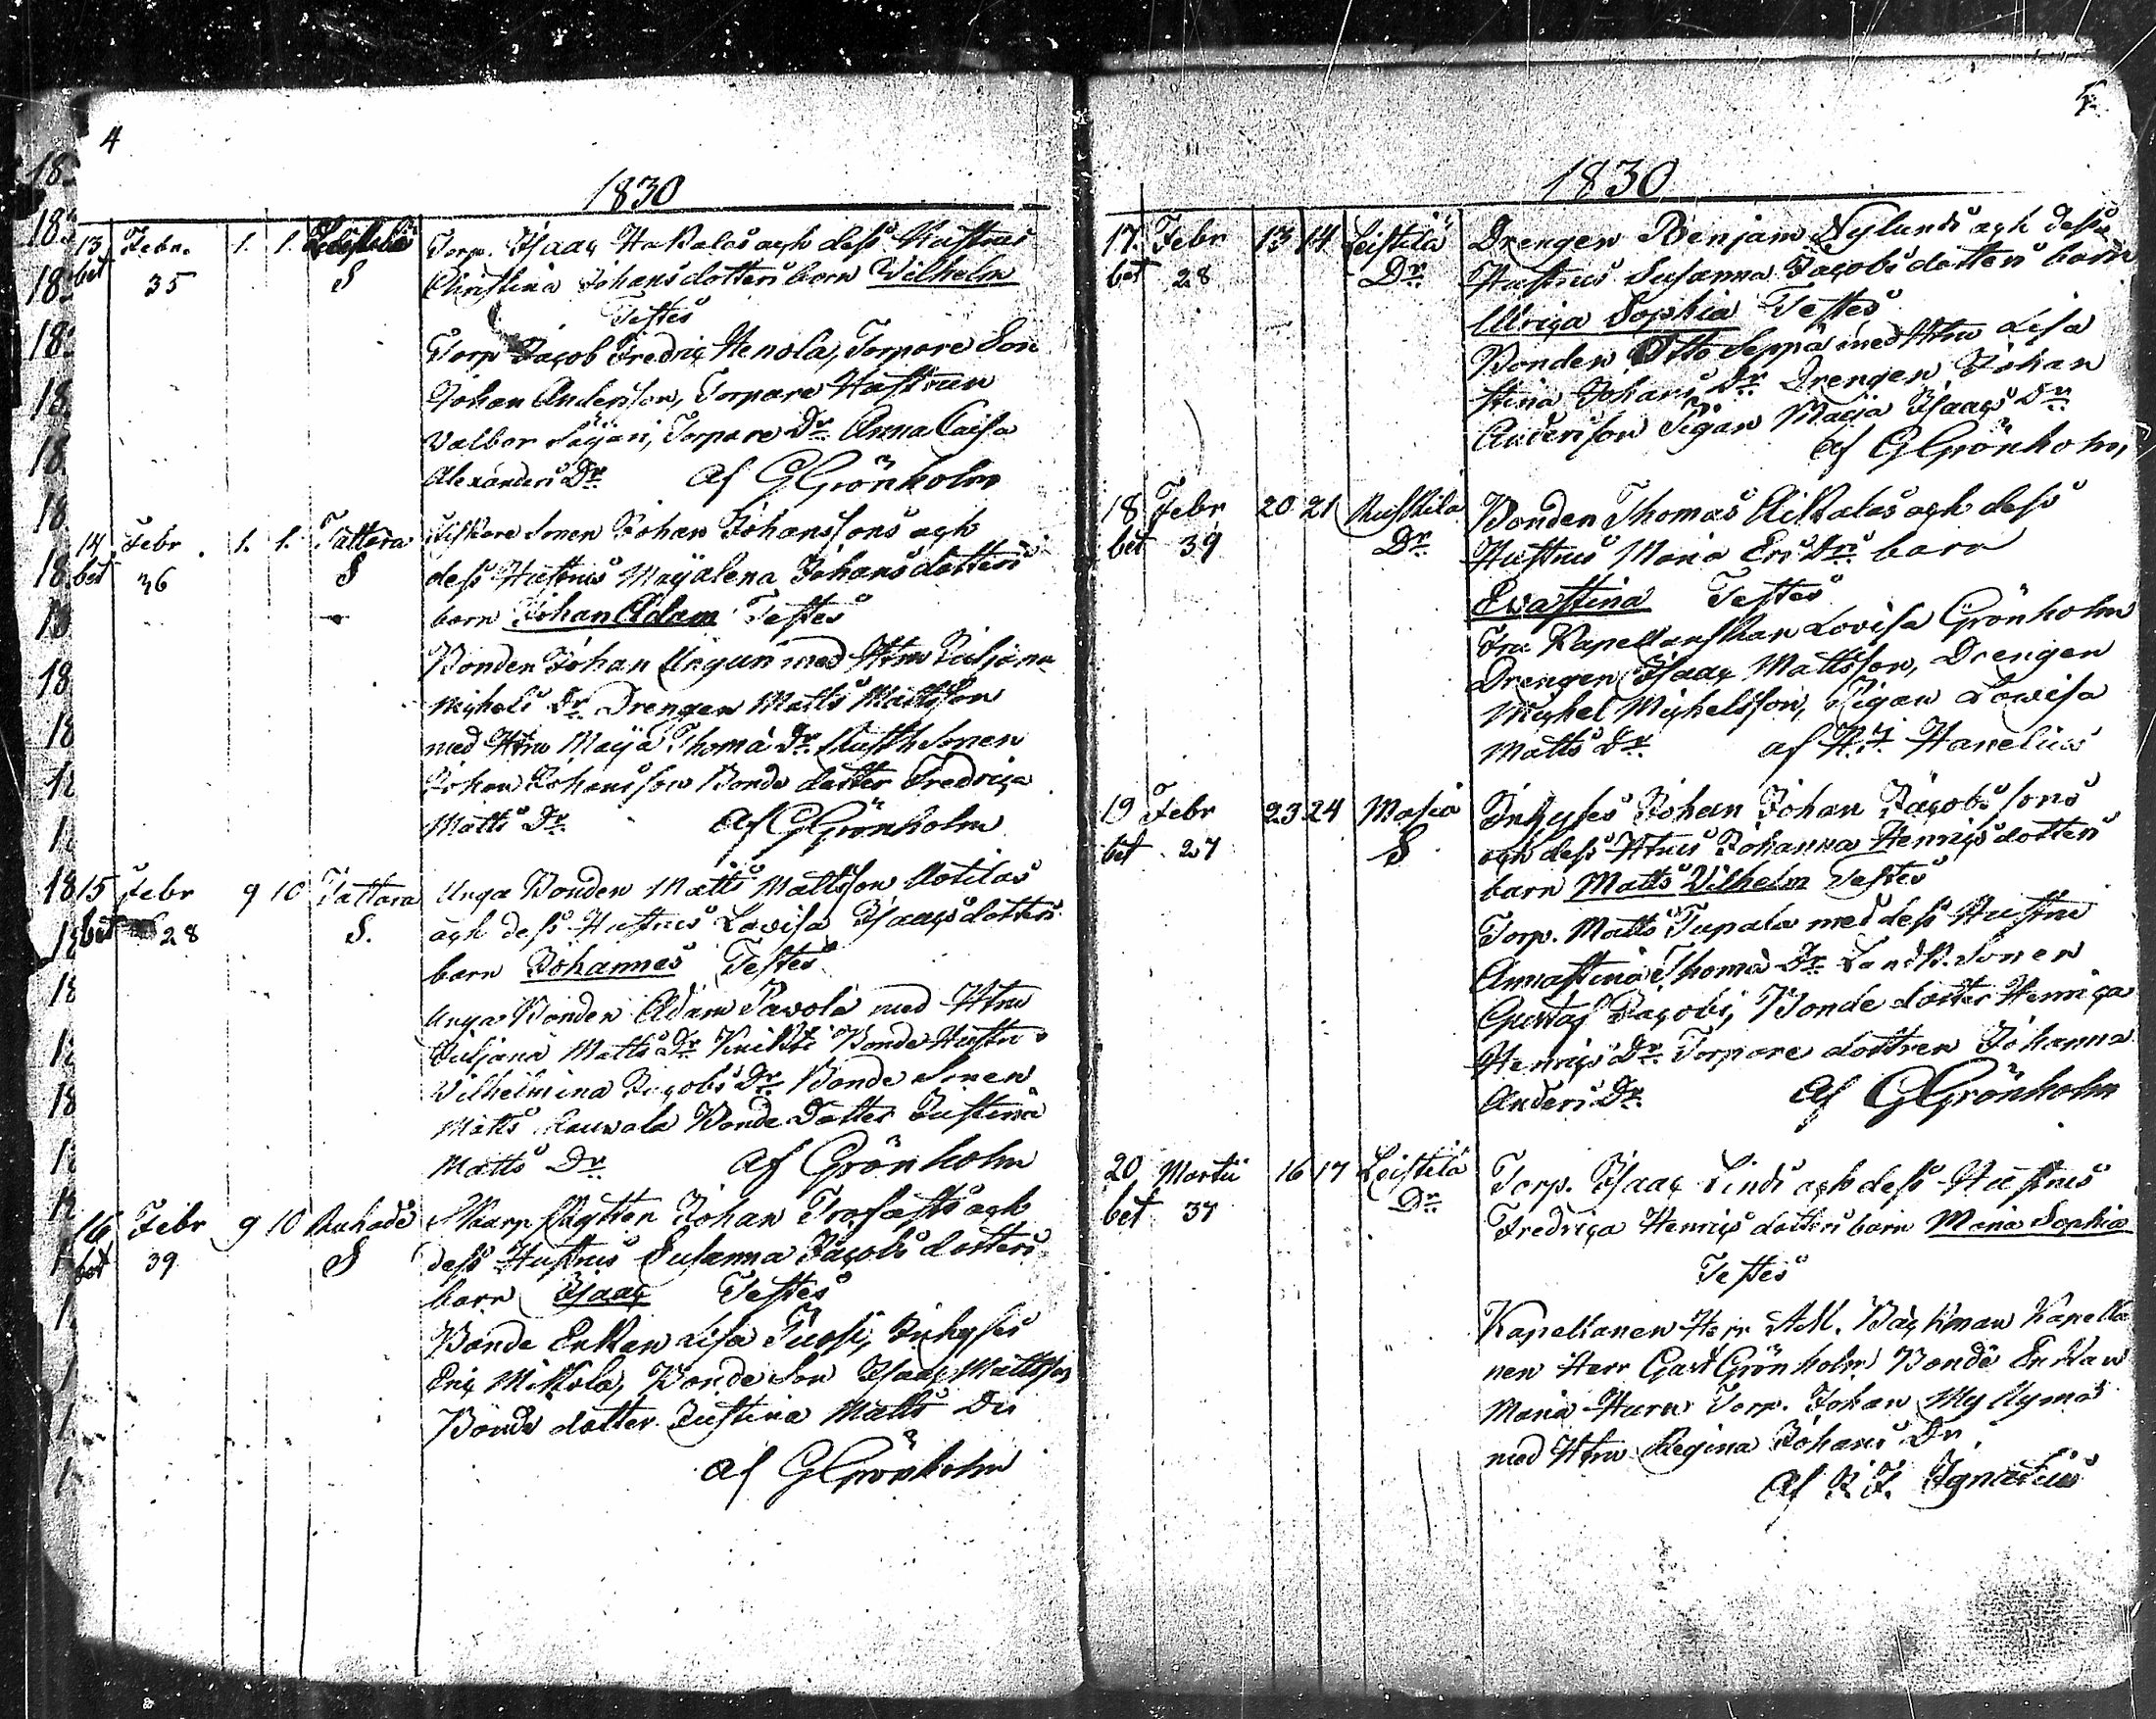 4
1830
13 Febr. 1. 1. Torp. Isaac Hakalas och dess Hustrus
bet 35 S Christina Johansdotters barn Wilhelm
Testes
Torp Jacob Fredric Henola, Torpare Son
Johan Andersson, Torpare Hustrun
Valbor Säijäri, Torpare Dr Anna Caisa
Alexanders Dr af GGrönholm
14 Febr. 1. 1. Tattara Johan Johanssons och
bet 36 S dess Hustrus Majalena Johansdotters
barn Johan Adam Testes
Bonden Johan Ungun med Htru Juljana
Michels Dr Drengen Matts Mattsson
med Htru Maija Thomæ Dr Sonen
Johan Johansson Bonde dotter Fredrica
Matts Dr af GGrönholm
15 Febr 9 10 Tattara Unga Bonden Matts Mattsson Aotilas
bet 28 S. och dess Hustrus Lovisa Isaacsdotters
barn Johannes Testes
Unga Bonden Adam Pavola med Htru
Juljana Matts Dr Knikti Bonde Hustru
Vilhelmina Jacobs Dr Bonde Sonen
Matts Bonde Dotter Justina
Matts Dr af Grönholm
16 Febr 9 10 Rahade Skarp Skytten Johan Trofasts och
bet 39 S dess Hustrus Susanna Jacobsdotters
barn Isaac Testes
Bonde Enkan Lisa Jussi, Inhyses
Eric Mikkola, Bonde Son Isaac Mattsson
Bonde dotter Justina Matts Dr
af GGrönholm
5
1830
17. Febr 13 14 Leistilä Drengen Benjam Nylunds och dess
bet 28 Dr Hustrus Susanna Jacobsdotters barn
Ulrica Sophia Testes
Bonden Otto Seppä med Htru Lisa
Stina Johans Dr Drengen Johan
Andersson Pigan Maija Isaacs Dr
af GGrönholm
18 Febr 20 21 Ruskila Bonden Thomas Uikalas och dess
bet 39 Dr Hustrus Maria Ers Drs barn
Evastina Testes
Fru Kapellanskan Lovisa Grönholm
Drengen Isaac Mattsson, Drengen
Michel Michelsson, Pigan Lowisa
Matts Dr af Hanelius
19 Febr 23 24 Masia Inhyses Johan Johan Jacobssons
bet 27 S och dess Htrus Johanna Henricsdotters
barn Matts Vilhelm Testes
Torp. Matts Tupala med dess Hustru
Annastina Thomæ Dr Landb. Sonen
Gustaf Jacobs, Bonde dotter Henrica
Henrics Dr Torpare dottren Johanna
Anders Dr af GGrönholm
20 Martii 16 17 Leistilä Torp. Isaac Linds och dess Hustrus
bet 37 Dr Fredrica Henricsdotters barn Maria Sophia
Testes
Kapellanen Herr AM. Bäckman Kapella
nen Herr Gust Grönholm Bonde Enkan
Maria Huru Torp. Johan Myllymä
med Htru Regina Johans Dr
af J. F. Ignatius